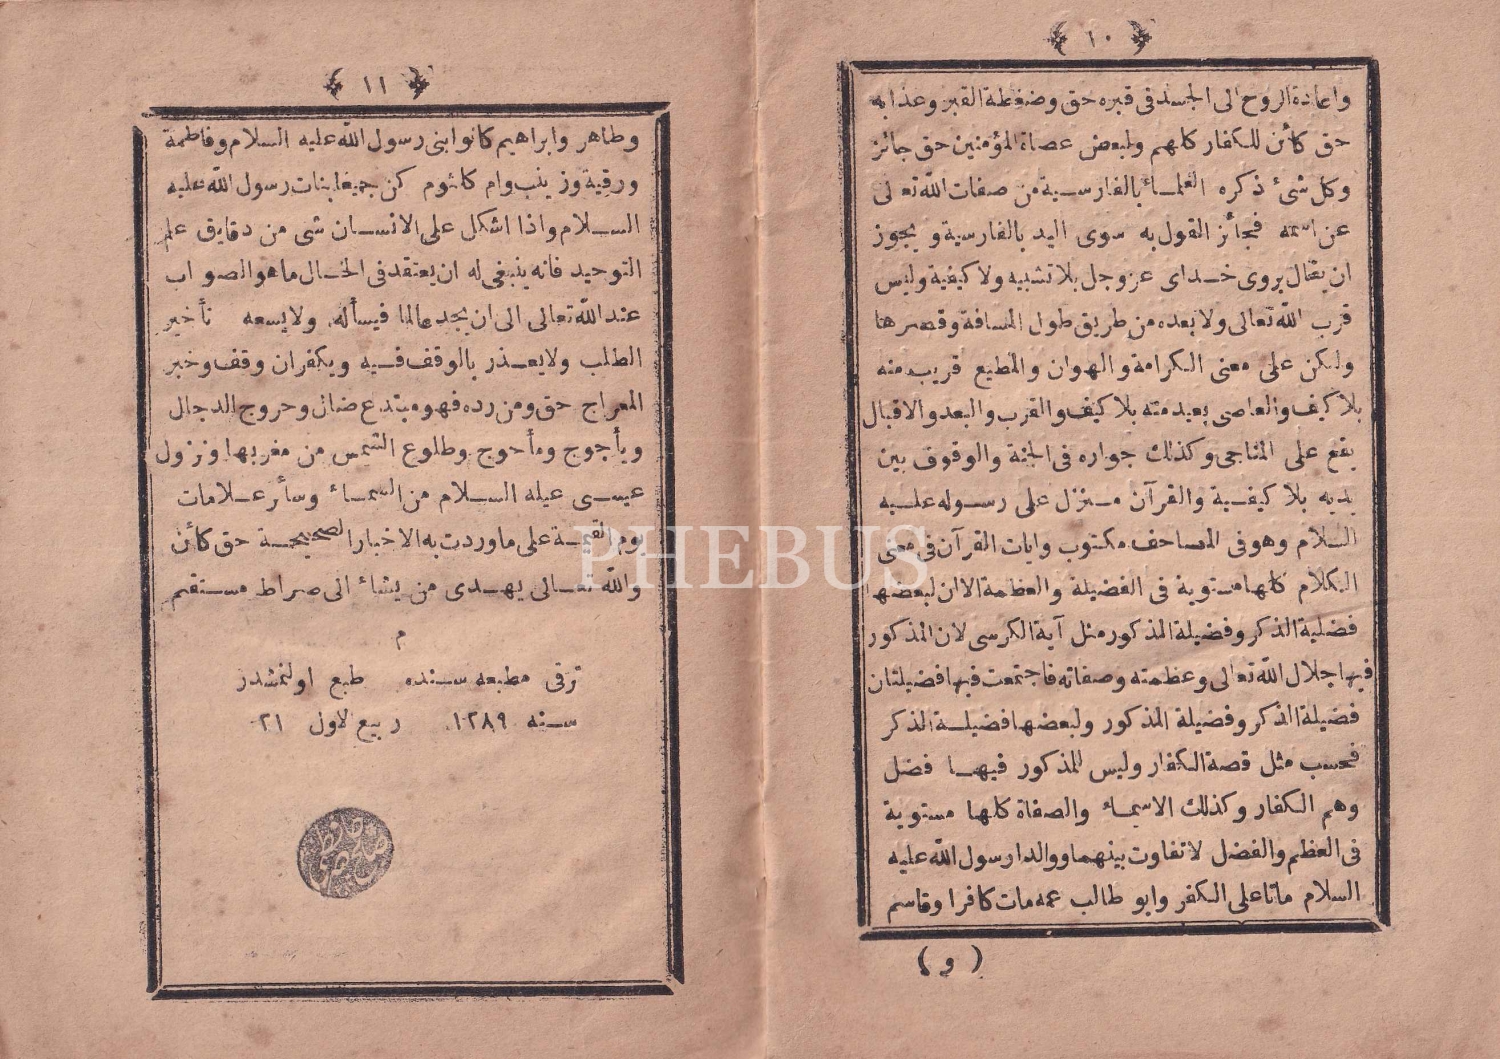 ١٠
واعادة الروح الى الجسد فى قبره حق وضغطة القبر وعذابه
حق كائن للكفار كلهم ولبعض عصاة المؤمنين حق جائز
وكل شئ ذكره العلماء بالفارسية من صفات الله تعالى
عن اسمه فجائز القول به سوى اليد بالفارسية ويجوز
ان يقال بروى خداى عز وجل بلا تشبيه ولا كيفية وليس
قرب الله تعالى ولا بعده من طريق طول المسافة وقصرها
ولكن على معنى الكرامة والهوان والمطيع قريب منه
بلا كيف والعاصى بعيد منه بلا كيف والقرب والبعد والاقبال
يقع على المناجى وكذلك جواره فى الجنة والوقوف بين
يديه بلا كيفية والقرآن منزل على رسوله عليه
السلام وهو فى المصاحف مكتوب وايات القرآن فى معنى
الكلام كلها مستوية فى الفضيلة والعظمة الا ان لبعضها
فضلية الذكر وفضيلة المذكور مثل آية الكرسى لان المذكور
فيها جلال الله تعالى وعظمته وصفاته فاجتمعت فيها فضيلتان
فضيلة الذكر وفضيلة المذكور ولبعضها فضيلة الذكر
فحسب مثل قصة الكفار وليس للمذكور فيها فضل
وهم الكفار وكذلك الاسماء والصفاة كلها مستوية
فى العظم والفضل لا تفاوت بينهما ووالدا رسول الله عليه
السلام ماتا على الكفر وابو طالب عمه مات كافرا وقاسم
( و )
١١
وطاهر وابراهيم كانوا بنى رسول الله عليه السلام وفاطمة
ورقية وزينب وام كلثوم كن جميعا بنات رسول الله عليه
السلام واذا اشكل على الانسان شى من دقايق علم
التوحيد فانه ينبغى له ان يعتقد فى الحال ما هو الصواب
عند الله تعالى الى ان يجد عالما فيسأله ولا يسعه تأخير
الطلب ولا يعذر بالوقف فيه ويكفر ان وقف وخبر
المعراج حق ومن رده فهو مبتدع ضال وخروج الدجال
ويأجوج ومأجوج وطلوع الشمس من مغربها ونزول
عيسى عيله السلام من السماء وسائر علامات
يوم القيمة على ما وردت به الاخبار الصحيحة حق كائن
والله تعالى يهدى من يشاء الى صراط مستقيم
م
ترقى مطبعه سنده طبع اولنمشدر
سنه ١٢٨٩ ربيع لاول ٢١
PHEBUS